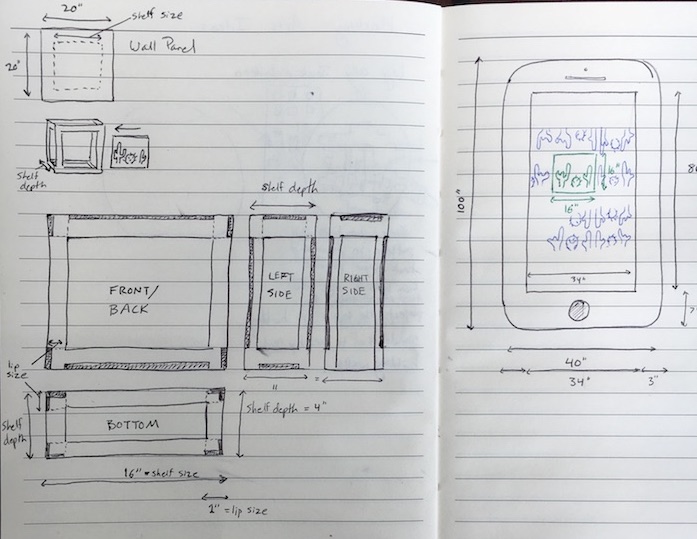 20"
shelf size
Wall Panel
20"
shelf
depth
shelf depth
FRONT/
BACK
LEFT
SIDE
RIGHT
SIDE
lip
size
shelf
depth
BOTTOM
shelf depth = 4"
16" = shelf size
2" = lip size
100"
16"
16"
34"
40"
34"
3"